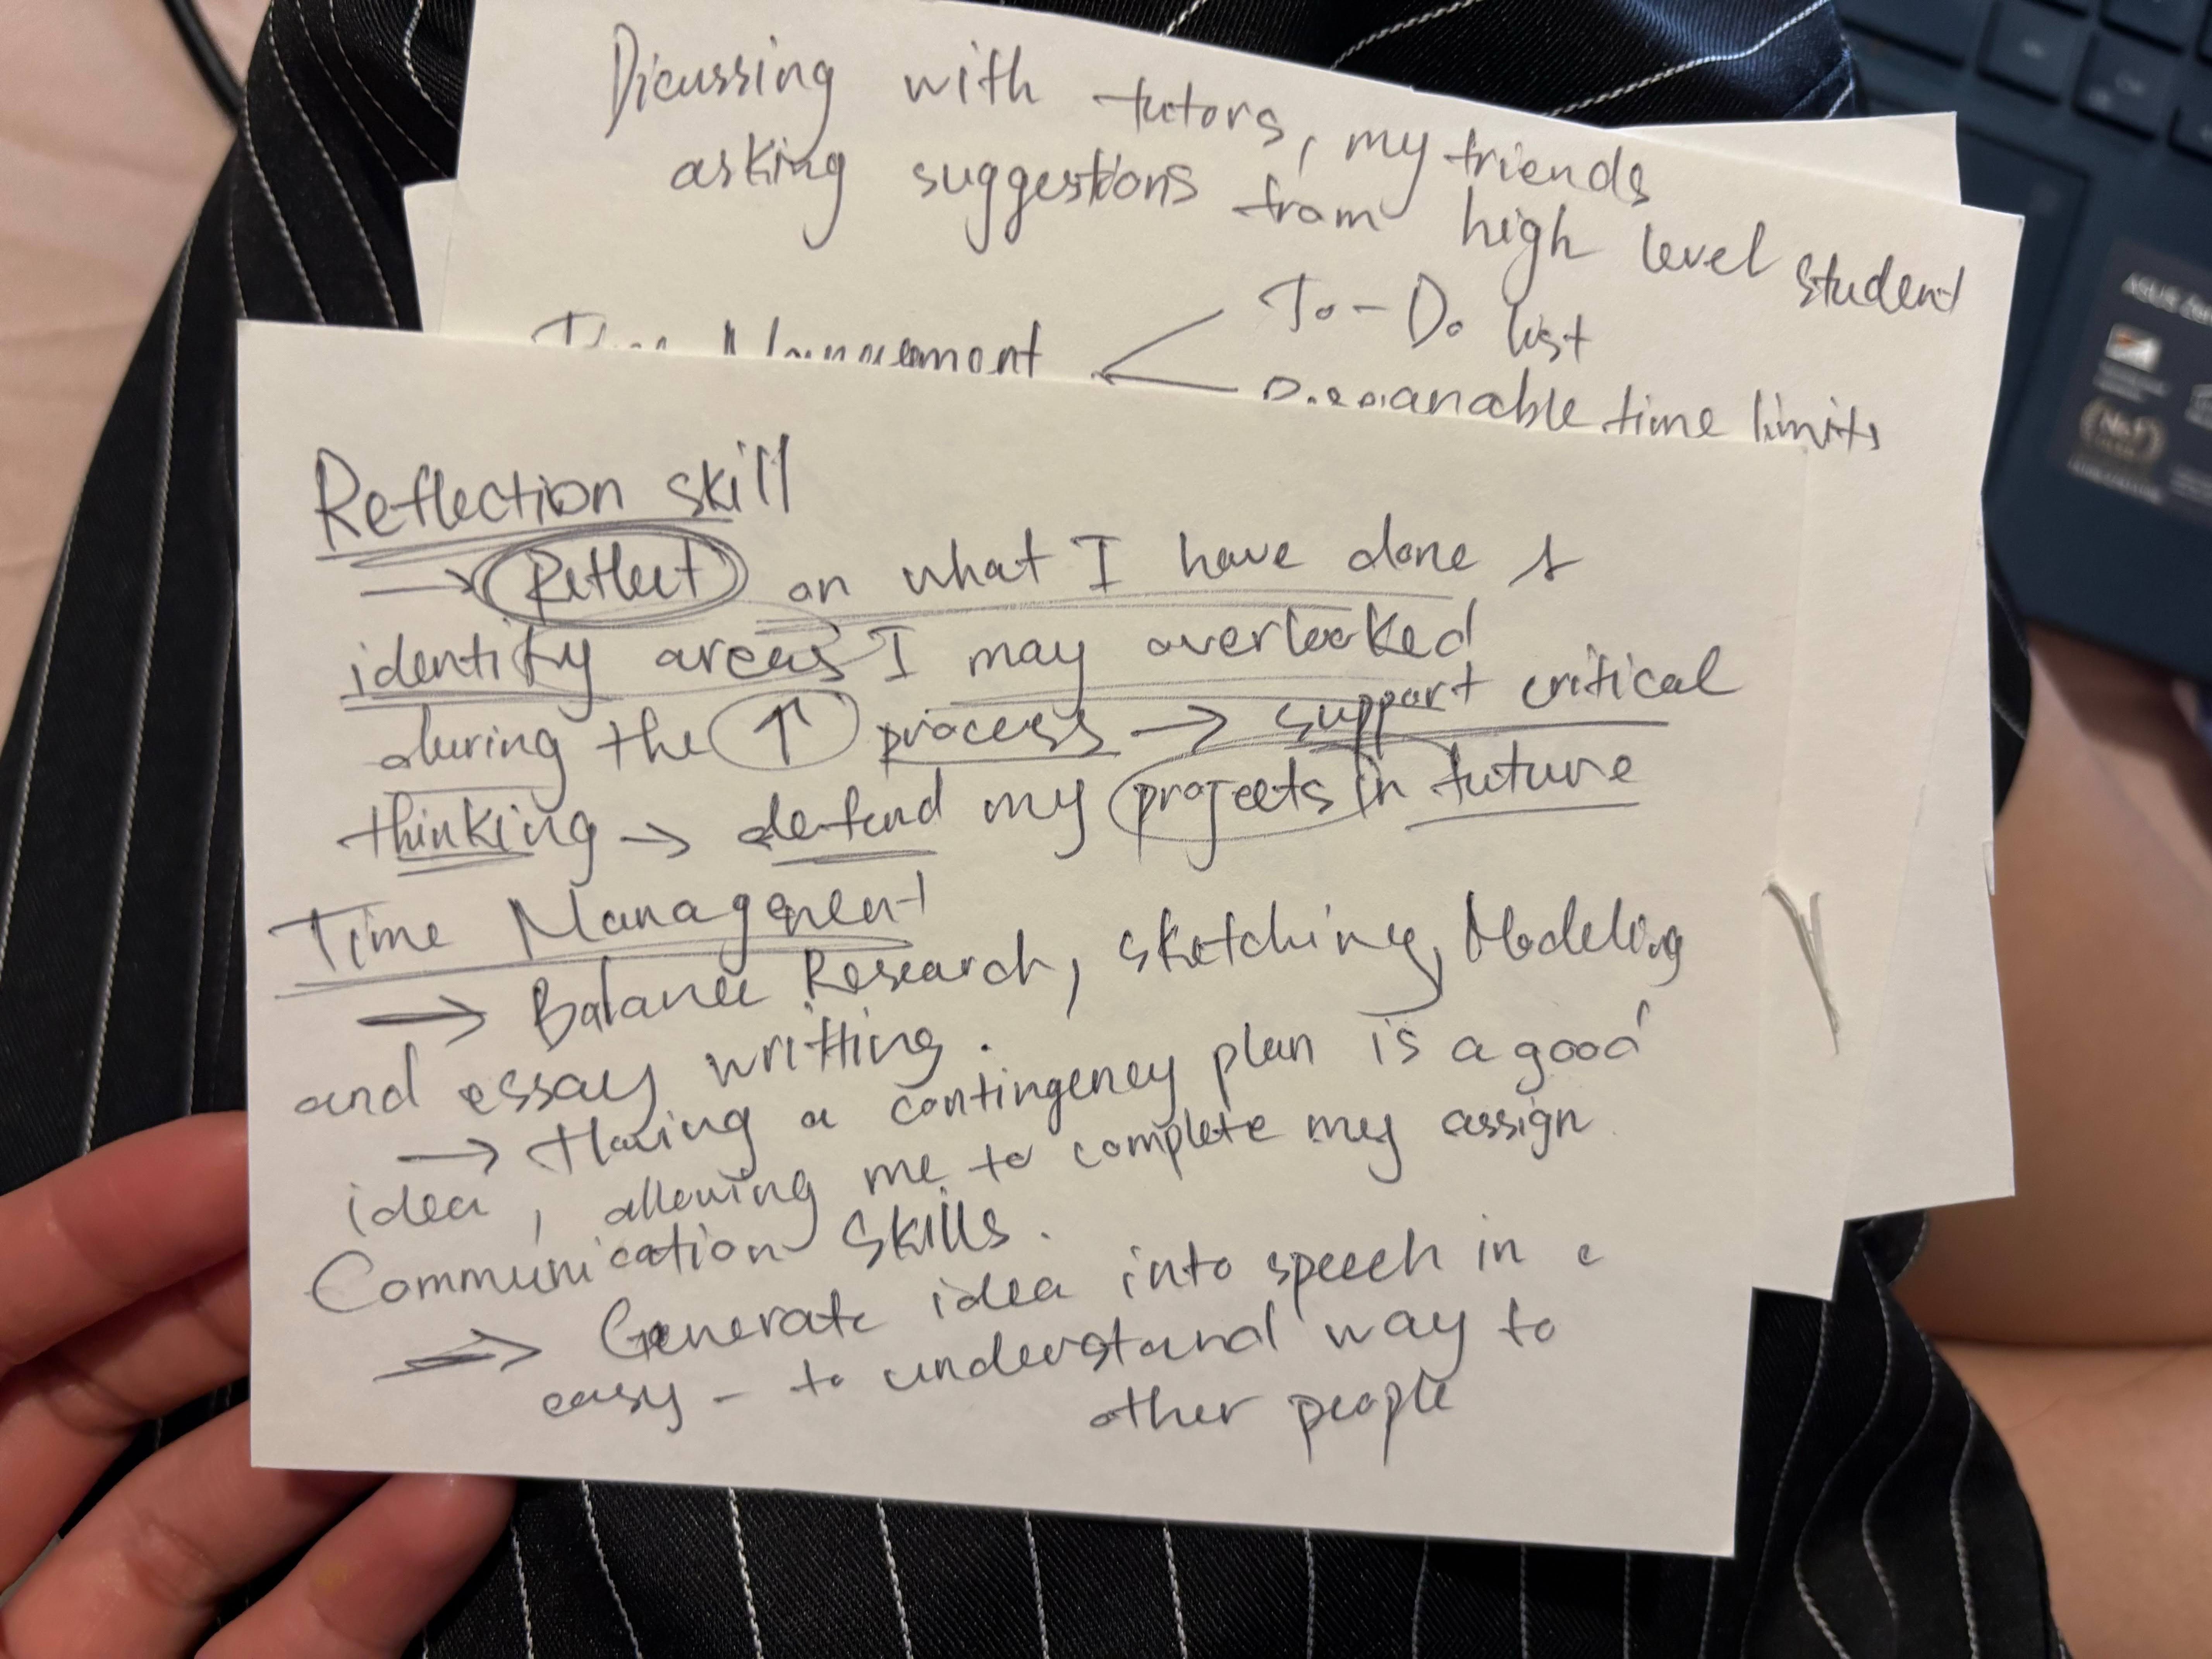 Dicussing with tutors, my friends
asking suggestions from high level student
To-Do list
Time Management
time limits
Reflection skill
→ Reflect on what I have done &
identify areas I may overlooked
during the ↑ process → support critical
thinking → defend my projects in future
Time Management
→ Balance Research, sketching, Modeling
and essay writting.
→ Having a contingency plan is a good
idea, allowing me to complete my assign
Communication Skills.
→ Generate idea into speech in
easy-to understand way to
other people
ASUS